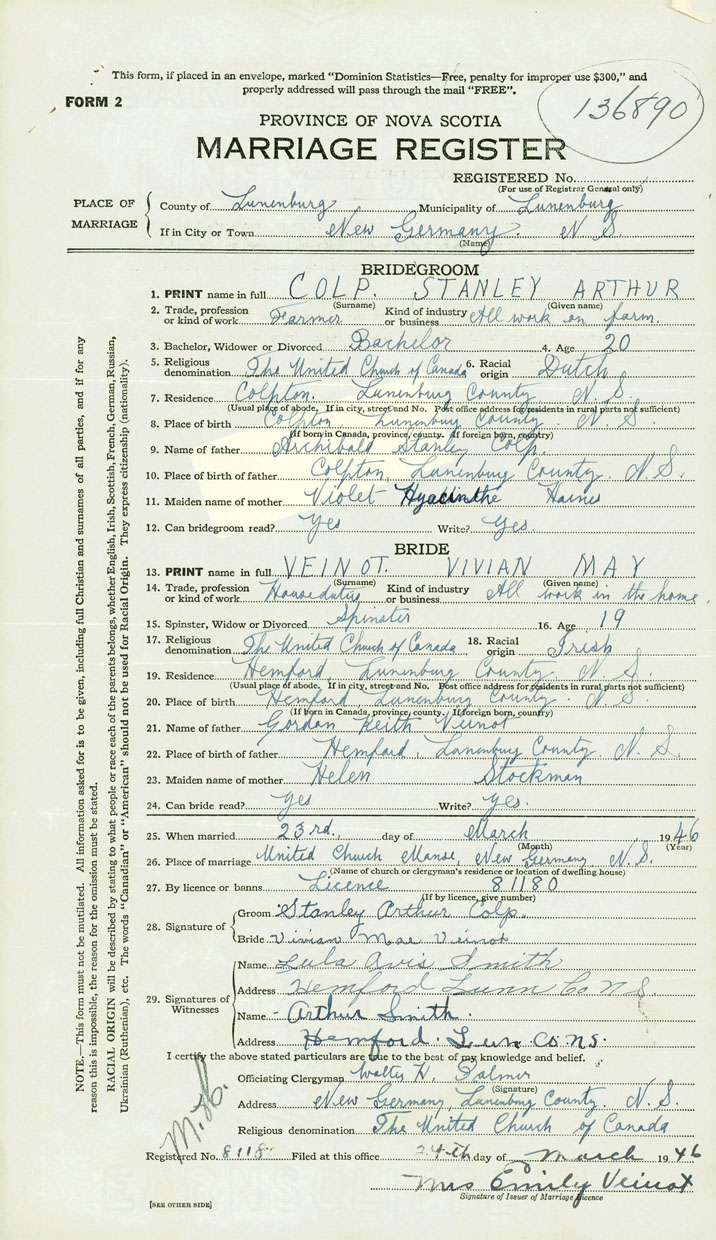 This form, if placed in an envelope, marked "Dominion Statistics—Free, penalty for improper use $300," and
properly addressed will pass through the mail "FREE".
FORM 2
136890
PROVINCE OF NOVA SCOTIA
MARRIAGE REGISTER
REGISTERED No.
(For use of Registrar General only)
PLACE OF MARRIAGE
County of Lunenburg Municipality of Lunenburg
If in City or Town New Germany N.S.
(Name)
BRIDEGROOM
1. PRINT name in full COLP. STANLEY ARTHUR
(Surname) (Given name)
2. Trade, profession or kind of work Farmer Kind of industry or business All work on farm.
3. Bachelor, Widower or Divorced Bachelor 4. Age 20
5. Religious denomination The United Church of Canada 6. Racial origin Dutch
7. Residence Colpton. Lunenburg County N.S.
(Usual place of abode. If in city, street and No. Post office address for residents in rural parts not sufficient)
8. Place of birth Colpton, Lunenburg County. N.S.
(If born in Canada, province, county. If foreign born, country)
9. Name of father Archibald Stanley Colp.
10. Place of birth of father Colpton, Lunenburg County. N.S.
11. Maiden name of mother Violet Hyacinthe Haines
12. Can bridegroom read? Yes Write? Yes.
BRIDE
13. PRINT name in full VEINOT. VIVIAN MAY
(Surname) (Given name)
14. Trade, profession or kind of work Houseduties Kind of industry or business All work in the home.
15. Spinster, Widow or Divorced Spinster 16. Age 19
17. Religious denomination The United Church of Canada 18. Racial origin Irish
19. Residence Hemford, Lunenburg County N.S.
(Usual place of abode. If in city, street and No. Post office address for residents in rural parts not sufficient)
20. Place of birth Hemford, Lunenburg County. N.S.
(If born in Canada, province, county. If foreign born, country)
21. Name of father Gordon Keith Veinot
22. Place of birth of father Hemford, Lunenburg County. N.S.
23. Maiden name of mother Helen Stockman
24. Can bride read? Yes Write? Yes.
25. When married 23rd. day of March 1946
(Month) (Year)
26. Place of marriage United Church Manse, New Germany. N.S.
(Name of church or clergyman's residence or location of dwelling house)
27. By licence or banns Licence 81180
(If by licence, give number)
28. Signature of
Groom Stanley Arthur Colp.
Bride Vivian Mae Veinot
29. Signatures of Witnesses
Name Lula Avis Smith
Address Hemford Lunn Co N.S.
Name Arthur Smith.
Address Hemford. Lun Co NS.
I certify the above stated particulars are true to the best of my knowledge and belief.
Officiating Clergyman Walter H. Palmer
(Signature)
Address New Germany, Lunenburg County. N.S.
Religious denomination The United Church of Canada
Registered No. 8118 Filed at this office 24th day of March 1946
Mrs Emily Veinot
Signature of Issuer of Marriage Licence
[SEE OTHER SIDE]
NOTE.—This form must not be mutilated. All information asked for is to be given, including full Christian and surnames of all parties, and if for any
reason this is impossible, the reason for the omission must be stated.
RACIAL ORIGIN will be described by stating to what people or race each of the parents belongs, whether English, Irish, Scottish, French, German, Russian,
Ukrainian (Ruthenian), etc. The words "Canadian" or "American" should not be used for Racial Origin. They express citizenship (nationality).